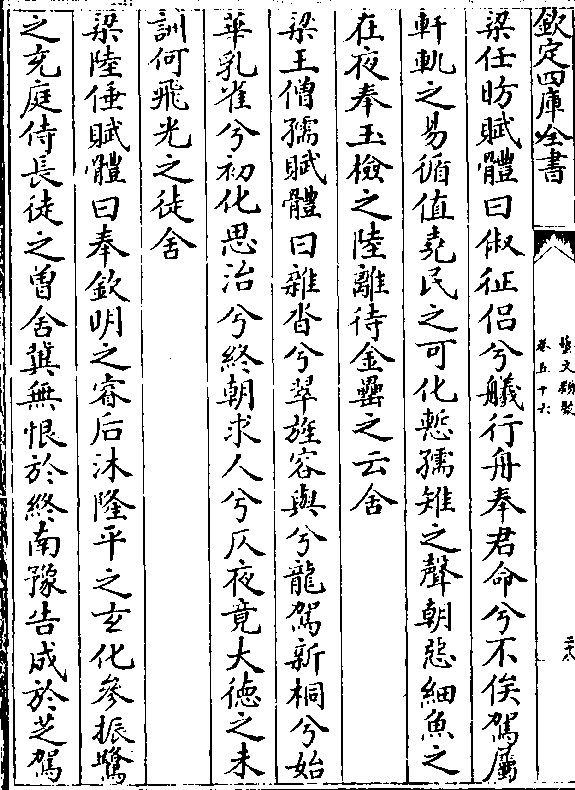 欽定四庫全書
藝文類聚
卷五十六
梁任昉賦體曰俶征侣兮艤行舟奉君命兮不俟駕屬
軒軌之易循值堯民之可化慙孺雉之聲朝惡細魚之
在夜奉玉檢之陸離待金罍之云舍
梁王僧孺賦體曰雜沓兮翠旌容與兮龍駕新桐兮始
華乳雀兮初化思治兮終朝求人兮仄夜竟大德之未
訓何飛光之徒舍
梁陸倕賦體曰奉欽明之睿后沐隆平之玄化參振鷺
之充庭侍長徒之曽舍冀無恨於終南豫告成於芝駕